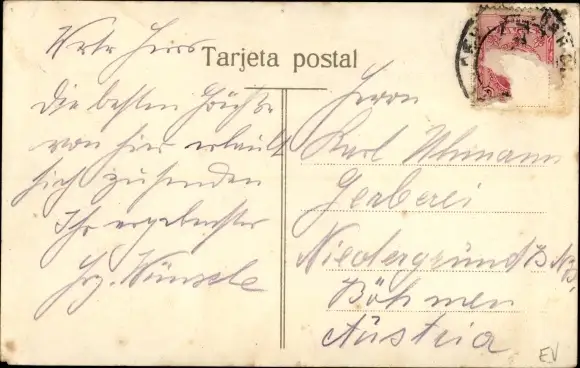 Tarjeta postal
die besten Grüße
von hier erlaubt
sich zu senden
Ihr ergebenster
Herrn
Karl
Gerberei
Niedergrund
Böhmen
Austria
EV